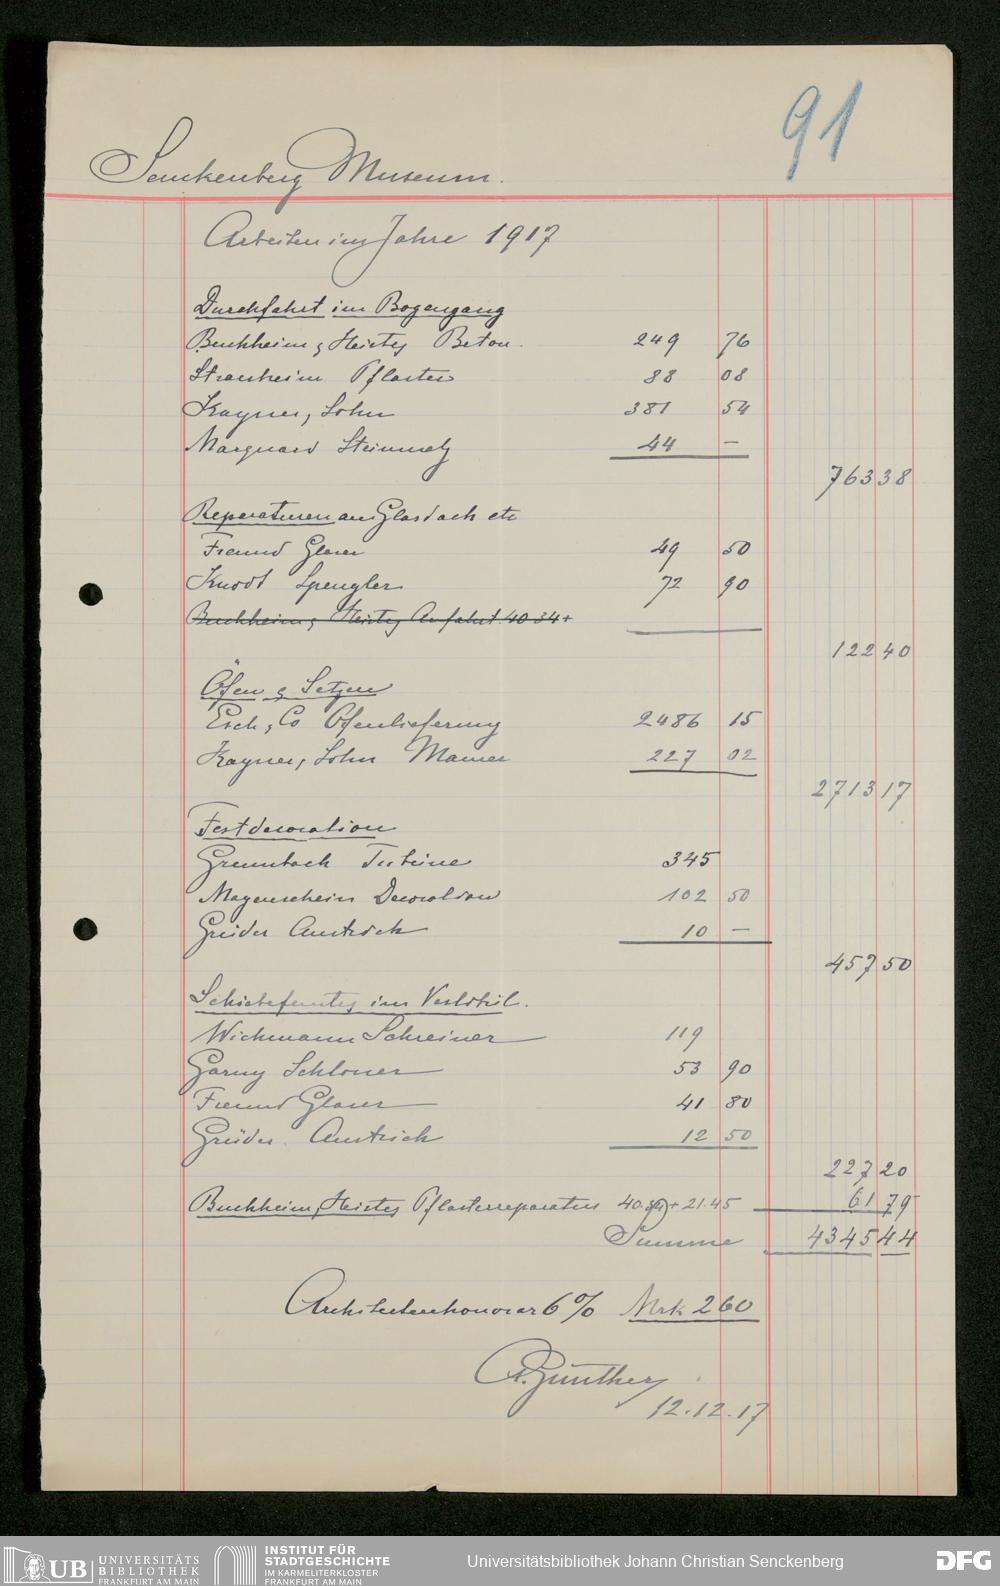 91
Senckenberg Museum.
Arbeiten im Jahre 1917
Durchfahrt im Bogengang
Buchheim & Heister Beton. 249 76
Strausheim Pflaster 88 08
Kayser, Sohn 381 54
Marguard Steinmetz 44 —
763 38
Reparaturen am Glasdach etc
Freund Glaser 49 50
Knodt Spengler 72 90
Buchheim & Heister Anfahrt 40 34 +
122 40
Öfen & Setzen
Esch & Co Ofenlieferung 2486 15
Kayser, Sohn Maurer 227 02
2713 17
Festdecoration
Grumbach 345
Mayenschein Decoration 102 50
Grüder Anstrich 10 —
457 50
Schiebefenster im Vestibül.
Wichmann Schreiner 119
Garny Schlosser 53 90
Freund Glaser 41 80
Grüder Anstrich 12 50
227 20
Buchheim & Heister Pflasterreparatur 40.34 + 21.45 61 79
Summe 4345 44
Architectenhonorar 6% Mrk 260
A. Günther
12.12.17
UB UNIVERSITÄTS
BIBLIOTHEK
FRANKFURT AM MAIN
INSTITUT FÜR
STADTGESCHICHTE
IM KARMELITERKLOSTER
FRANKFURT AM MAIN
Universitätsbibliothek Johann Christian Senckenberg
DFG